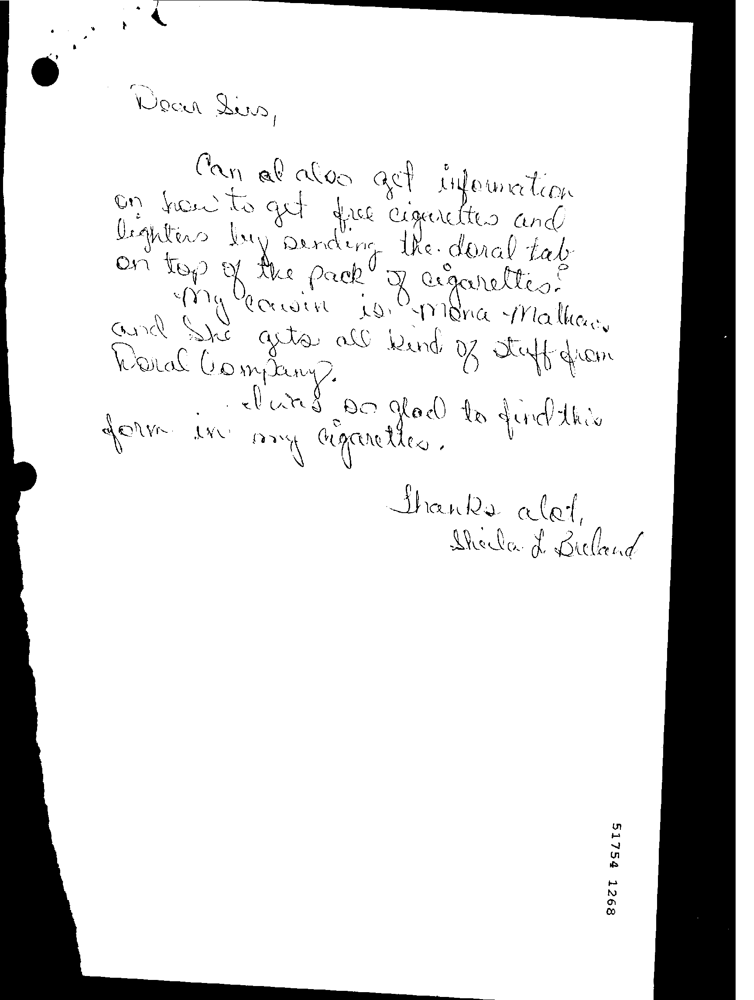 Dear Sirs,
Can I also get information
on how to get free cigarettes and
lighters by sending the doral tab
on top of the pack of cigarettes?
My cousin is Mona
and She gets all kind of stuff from
Doral Company.
I was so glad to find this
form in my cigarettes.
Thanks alot,
Sheila L Breland
51754 1268